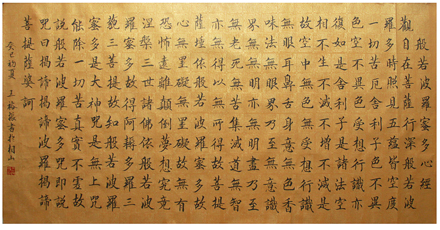 般若波羅蜜多心經
觀自在菩薩行深般若波
羅多時照見五蘊皆空度
一切苦厄舍利子色不異
色空不異色受想行識亦
復如是舍利子是諸法空
相不生不滅不增不減是
故空中無色無受想行識
無眼耳鼻舌身意無色香
味法無眼界乃至無意識
界無無明亦無明盡乃至
無老死無苦集滅道無智
亦無得以無所得故菩提
薩埵依般若波羅蜜多故
心無罣礙無罣礙故無有
恐怖遠離顛倒夢想究竟
涅槃三世諸佛依般若波
羅蜜多故得阿耨多羅三
藐三菩提故知般若波羅
蜜多是大神咒是無上咒
能除一切苦真實不虛故
說般若波羅蜜多咒即說
咒曰揭諦揭諦波羅揭諦
菩提薩婆訶
癸巳初夏 王 書於 山